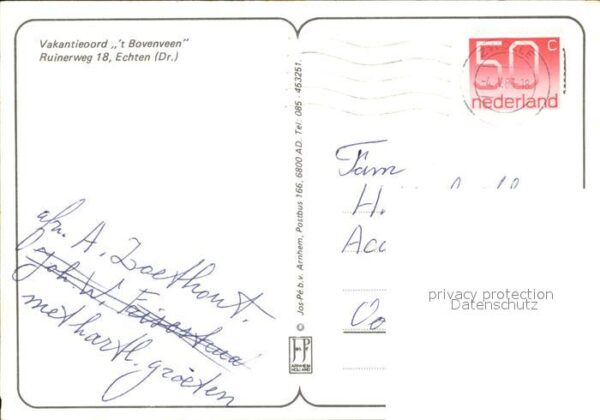 Vakantieoord „'t Bovenveen”
Ruinerweg 18, Echten (Dr.)
afz. A. Zoethout,
Joh. W.
met hartl. groeten
© Jos-Pé b.v. Arnhem, Postbus 166, 6800 AD. Tel: 085 - 453251.
JOS PÉ
ARNHEM
HOLLAND
50 c
nederland
Fam
H.
Acc
privacy protection
Datenschutz